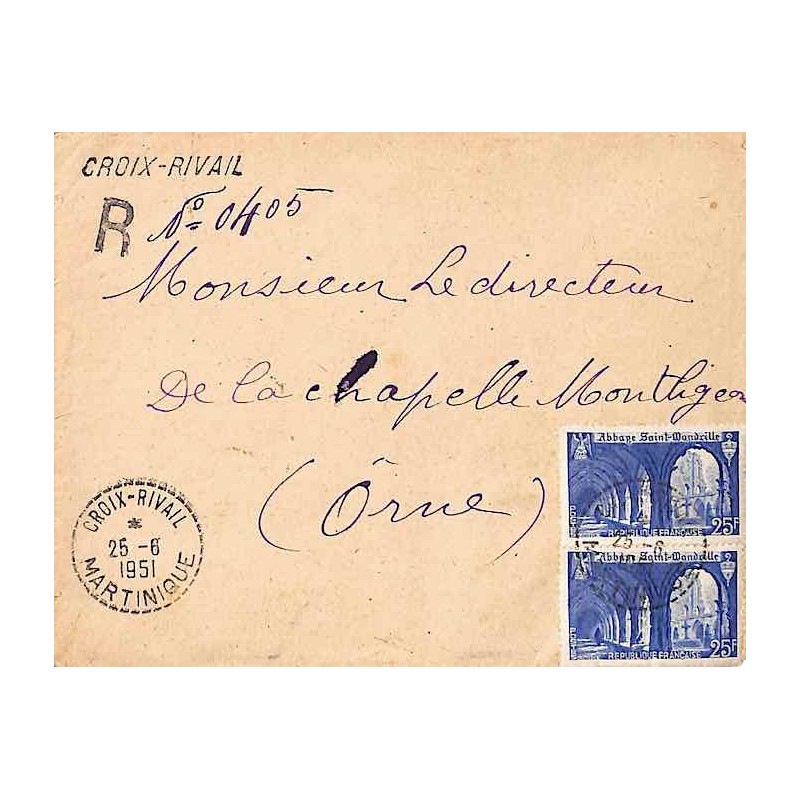 CROIX-RIVAIL
R Nº 0405
Monsieur Le directeur
De la chapelle Montligeon
(Orne)
Abbaye Saint-Wandrille
POSTES
REPUBLIQUE FRANÇAISE
25F
CROIX-RIVAIL
*
25 -6
1951
MARTINIQUE
25 -6
Abbaye Saint-Wandrille
POSTES
REPUBLIQUE FRANÇAISE
25F